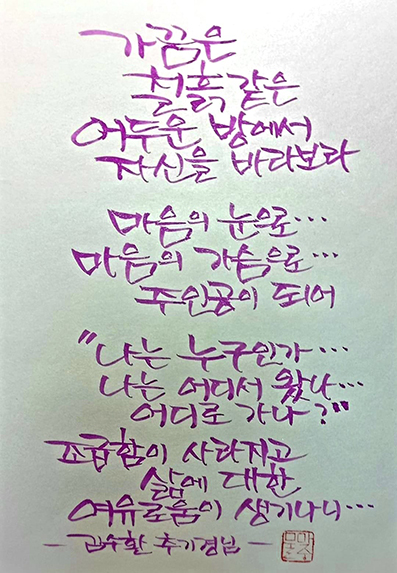 가끔은
칠흙 같은
어두운 방에서
자신을 바라보라
마음의 눈으로...
마음의 가슴으로...
주인공이 되어
"나는 누구인가...
나는 어디서 왔나...
어디로 가나?"
조급함이 사라지고
삶에 대한
여유로움이 생기나니...
- 김수환 추기경님 -